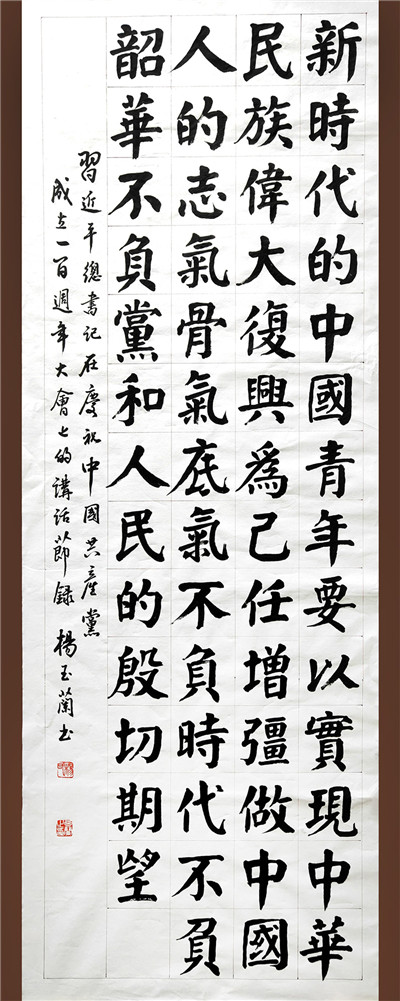 新時代的中國青年要以實現中華
民族偉大復興爲己任增彊做中國
人的志氣骨氣底氣不負時代不負
韶華不負黨和人民的殷切期望
習近平總書記在慶祝中國共產黨
成立一百週年大會上的講話節錄 楊玉蘭书